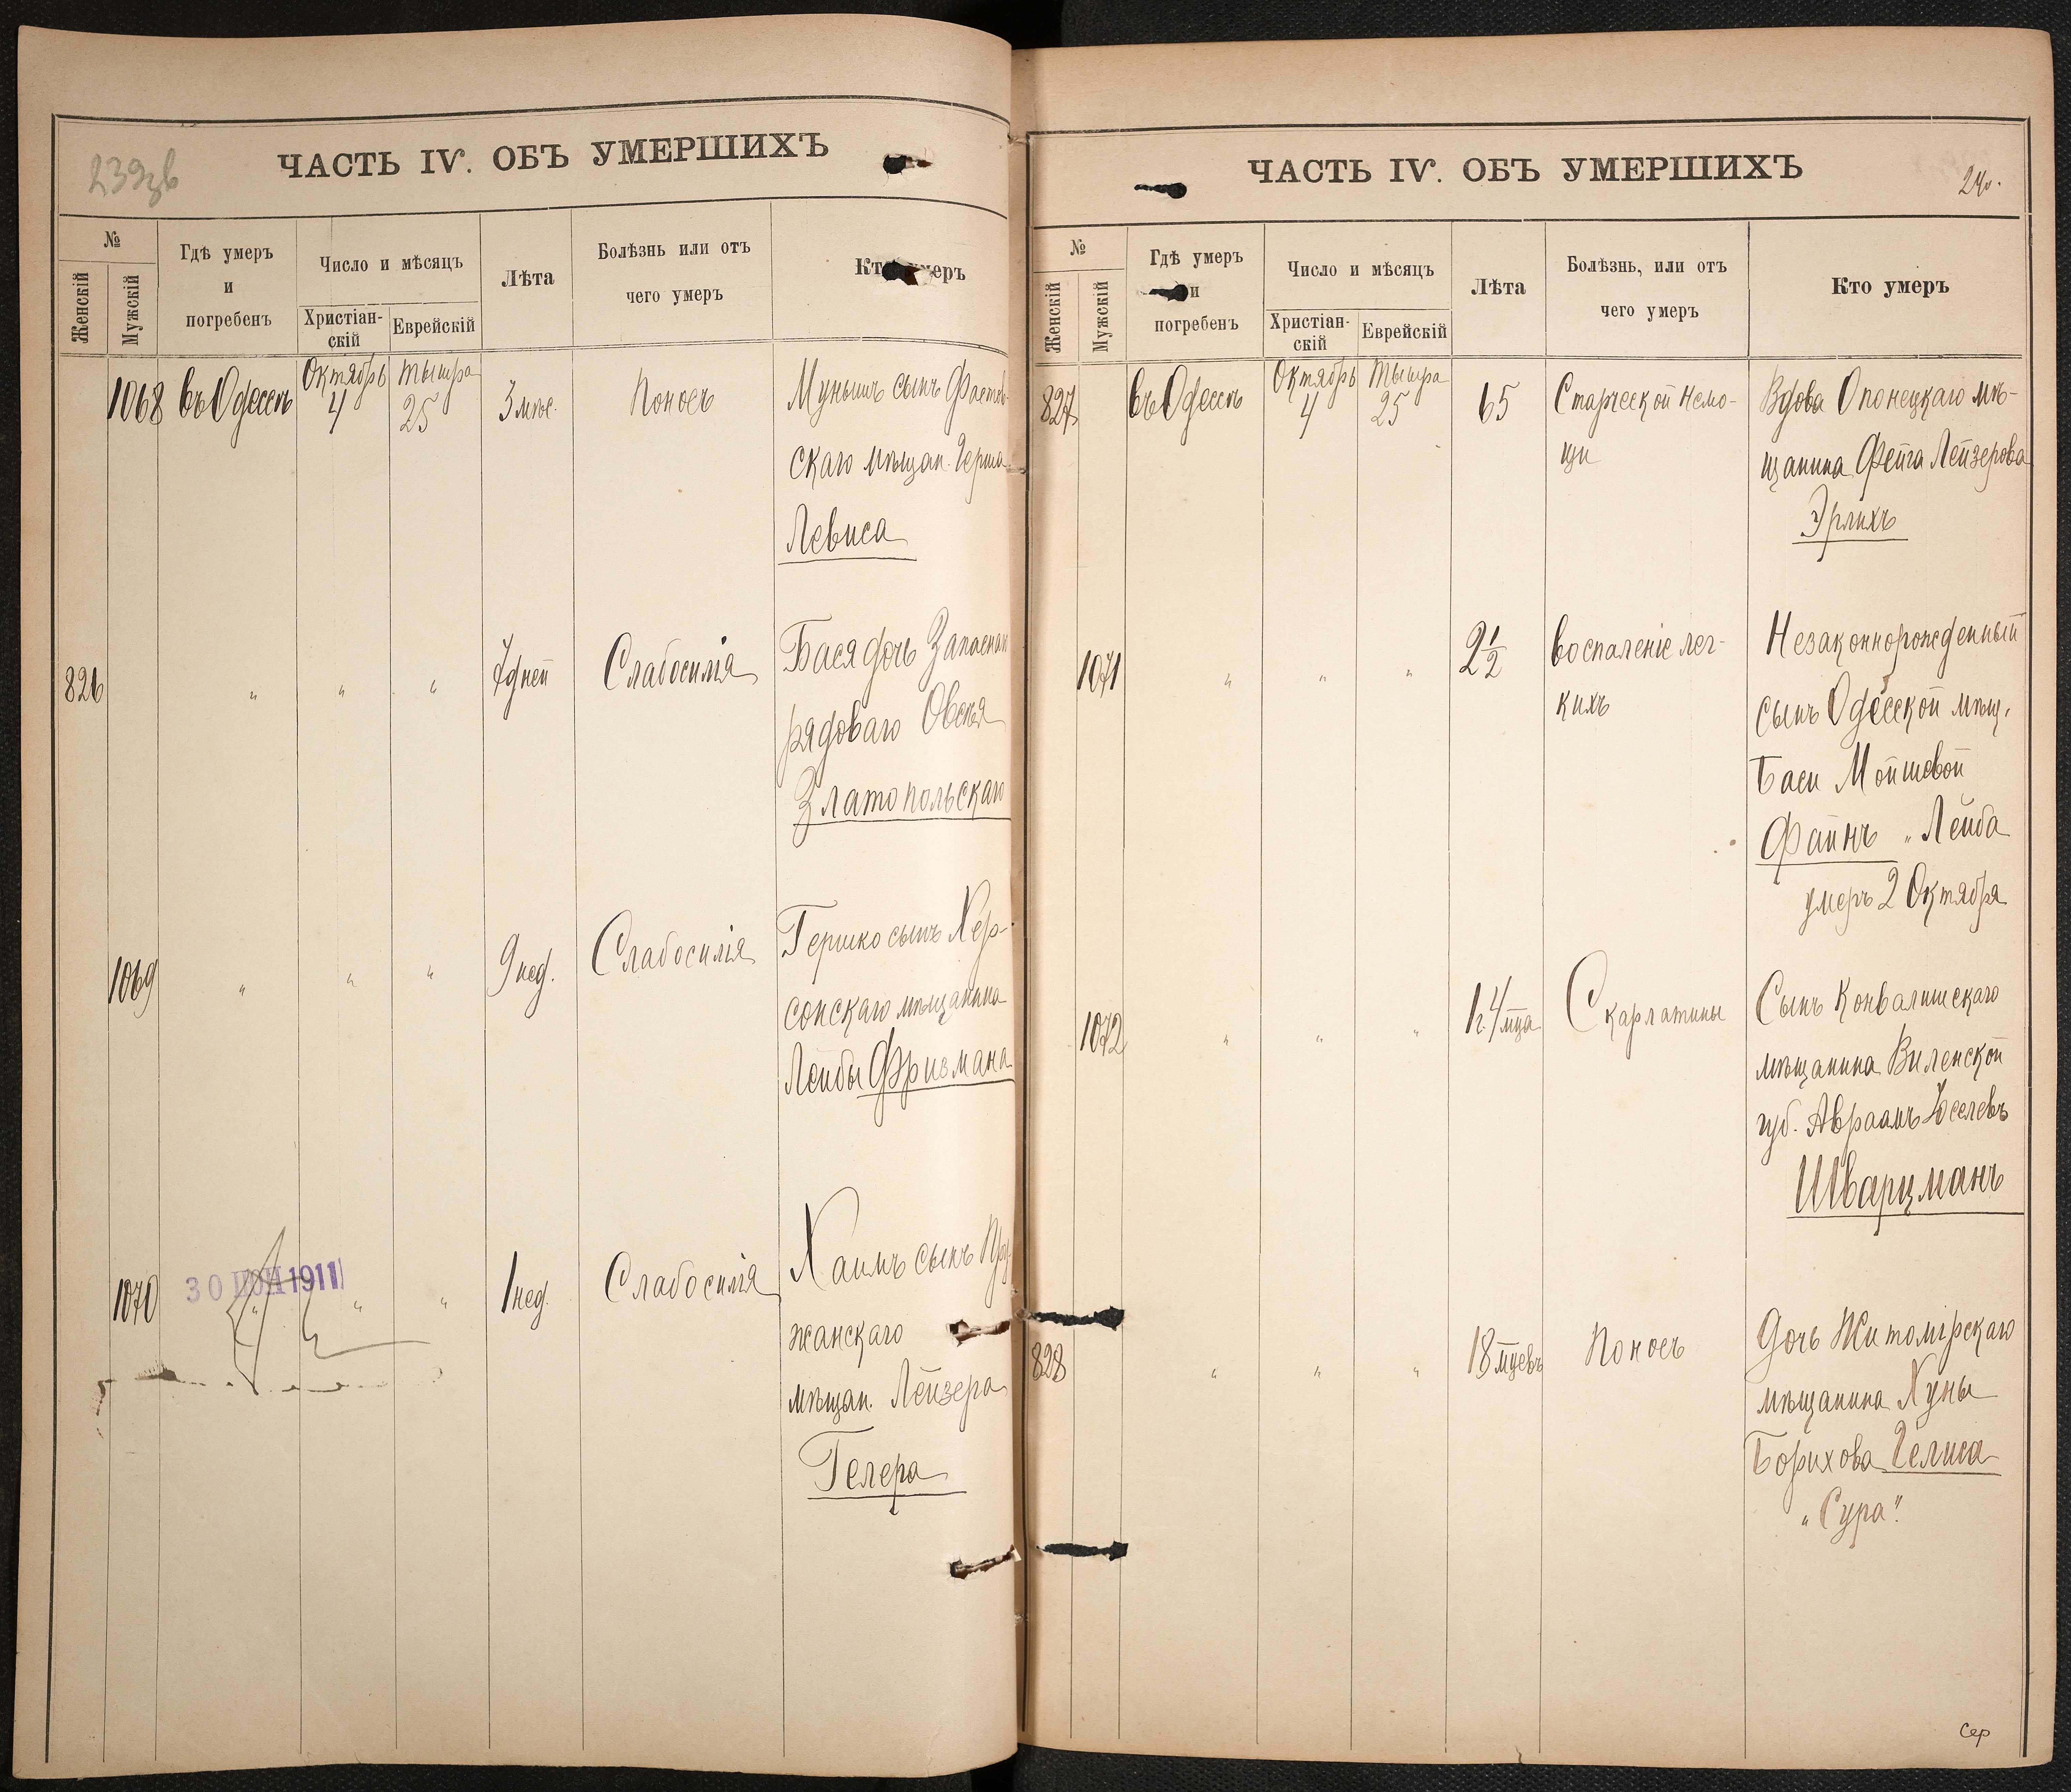 239зв
ЧАСТЬ IV. ОБЪ УМЕРШИХЪ
№
Женскій
Мужскій
Гдѣ умеръ
и
погребенъ
Число и мѣсяцъ
Христіан-
скій
Еврейскій
Лѣта
Болѣзнь или отъ
чего умеръ
Кто умеръ
1068 въ Одессѣ Октябрь 4 Тышра 25 3 мѣс. Поносъ Мунышъ сынъ
скаго мѣщан. Герша
Левиса
826 " " " 7 дней Слабосилія Бася дочь
рядоваго Овсѣя
Златопольскаго
1069 " " " 9 нед. Слабосилія Гершко сынъ Хер-
сонскаго мѣщанина
Лейбы Фризмана
1070 " " " 1 нед. Слабосилія Хаимъ сынъ
жанскаго
мѣщан. Лейзера
Гелера
30 ІЮН 1911
ЧАСТЬ IV. ОБЪ УМЕРШИХЪ
№
Женскій
Мужскій
Гдѣ умеръ
и
погребенъ
Число и мѣсяцъ
Христіан-
скій
Еврейскій
Лѣта
Болѣзнь, или отъ
чего умеръ
Кто умеръ
827 въ Одессѣ Октябрь 4 Тышра 25 65 Старческой немо-
щи
Вдова Опонецкаго мѣ-
щанина Фейга Лейзерова
Эрлихъ
1071 " " " 2 1/2 воспаленіе лег-
кихъ
Незаконнорожденный
сынъ Одесской мѣщ.
Баси Мойшевой
Файнъ „Лейба
умеръ 2 Октября
1072 " " " 1 г. 4 мца Скарлатины Сынъ Конвалишскаго
мѣщанина Виленской
губ. Авраамъ Іоселевъ
Шварцманъ
828 " " " 18 мцевъ Поносъ Дочь Житомірскаго
мѣщанина Хуны
Борихова Гелиса
„Сура"
Сер